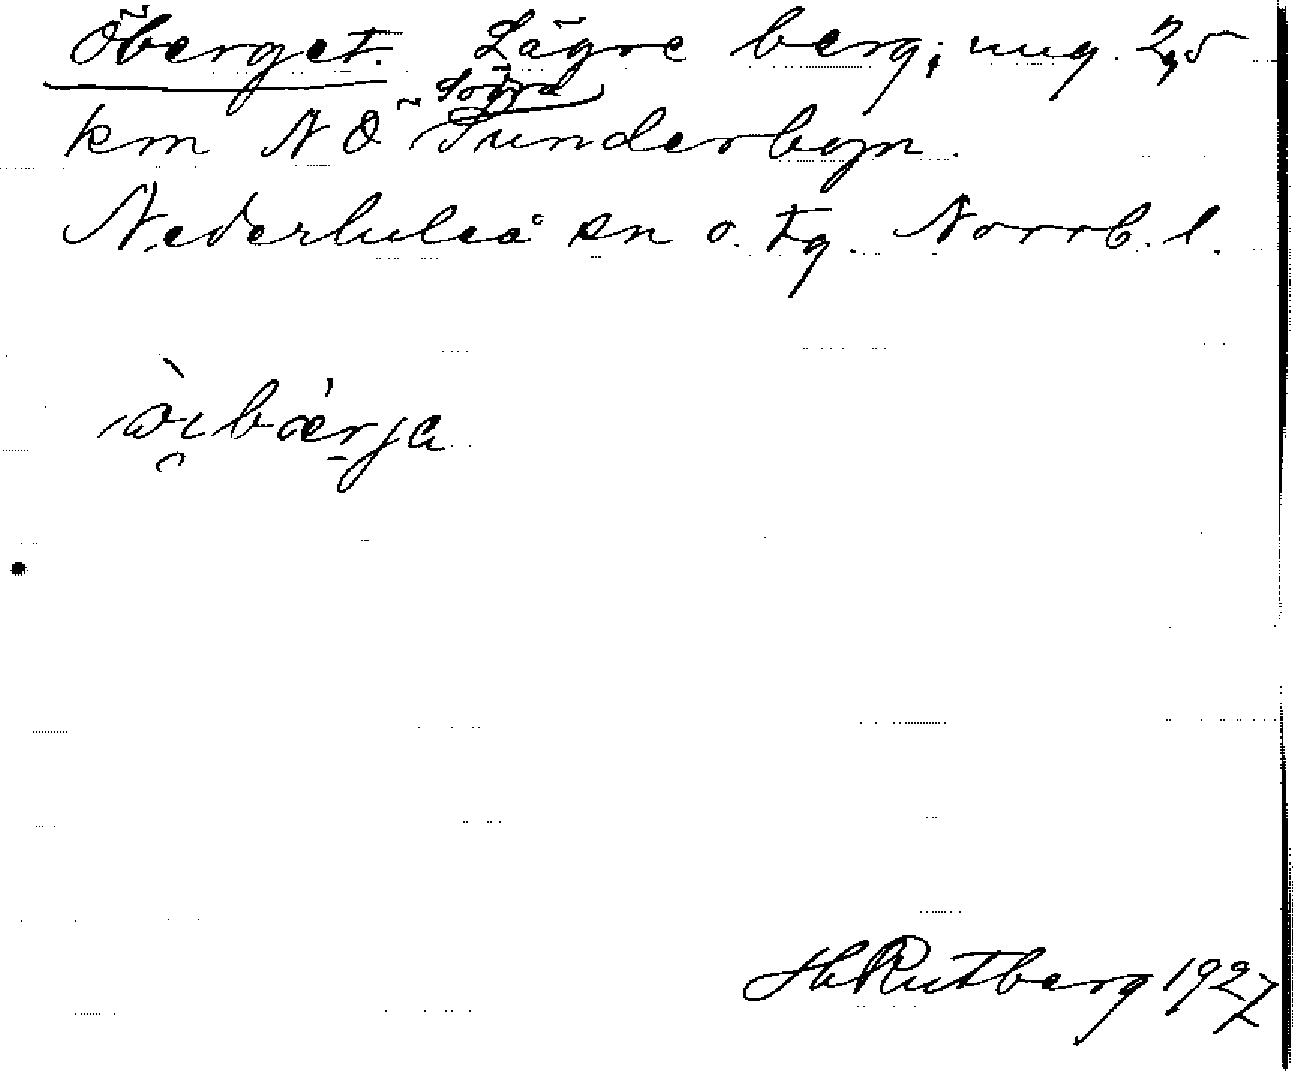 Öberget. Lägre berg, ung. 2,5
km NÖ Södra Sunderbyn.
Nederluleå sn o. tg. Norrb. l.
H Rutberg 1927